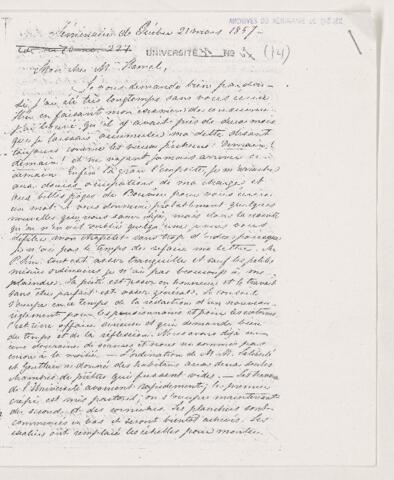 ARCHIVES DU SÉMINAIRE DE QUÉBEC
Séminaire de Québec 21 mars 1857
UNIVERSITÉ NO (14)
Mon cher M. Hamel,
Je vous demande bien pardon
si j'ai été très longtemps sans vous écrire
en faisant mon examen de conscience
j'ai trouvé qu'il y avait près de deux mois
que je laissais ma dette disant
toujours comme les vieux pécheurs: Demain!
demain! et ne voyant jamais arriver ce
demain. Enfin la grâce l'emporte, je m'arrache
aux douces occupations de ma charge et
aux belles pages de pour vous écrire
un mot. Je vous donnerai probablement quelques
nouvelles que vous savez déjà, mais dans le doute
qu'on n'en ait oublié quelqu'une, je vous
défilerai mon chapelet sans trop d'ordre parce que
je n'ai pas le temps de refaire ma lettre. Au
P. Sém. tout est assez tranquille et sauf les petites
misères ordinaires je n'ai pas beaucoup à me
plaindre. La piété est assez en honneur et le travail
sans être parfait est assez général. Le conseil
s'occupe en ce temps de la rédaction d'un nouveau
règlement pour les pensionnaires et pour les externes
C'est une affaire sérieuse et qui demande bien
du temps et de la réflexion. Nous avons déjà
une douzaine de séances et nous ne sommes pas
encore à la moitié. — L'ordination de M. M.
et Gauthier a donné des habitans aux deux seules
chambres de prêtres qui fussent vides. — Les travaux
de l'Université avancent rapidement; le premier
crépi est mis partout; on s'occupe maintenant
du second et des corniches. Les planchers sont
commencés en bas et seront bientôt achevés. Les
escaliers ont remplacé les échelles pour monter